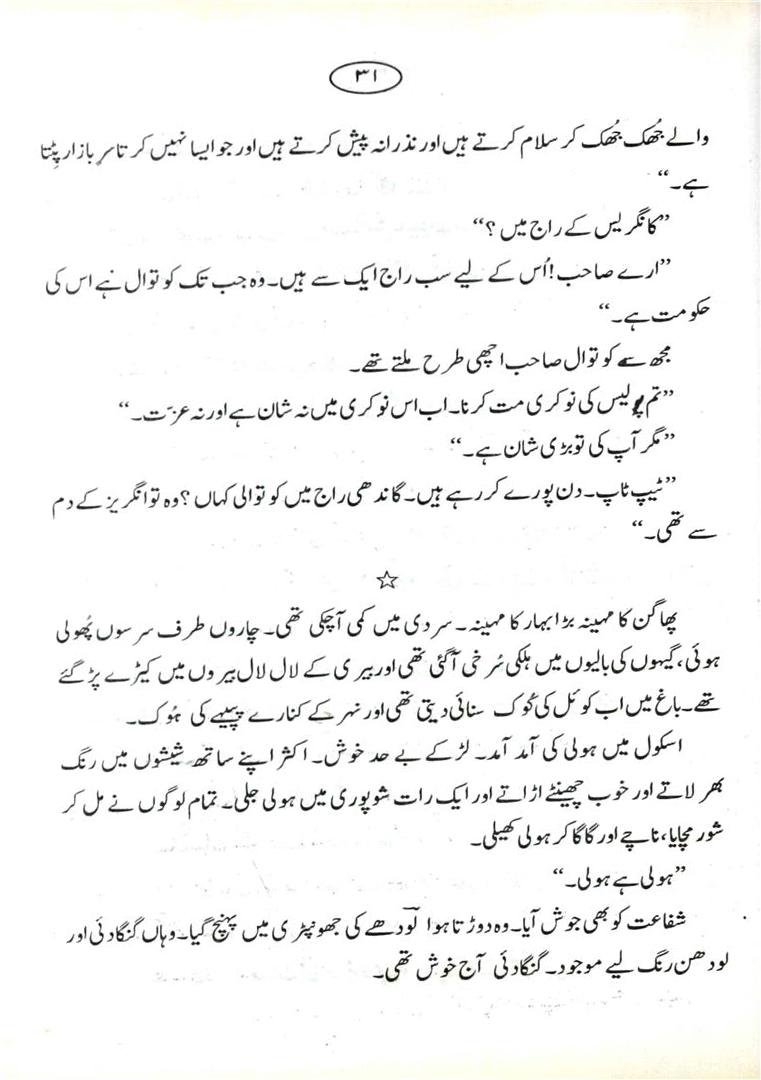 ۳۱
والے جُھک جُھک کر سلام کرتے ہیں اور نذرانہ پیش کرتے ہیں اور جو ایسا نہیں کرتا سرِ بازار پِٹتا
ہے۔“
”کانگریس کے راج میں؟“
”ارے صاحب! اُس کے لیے سب راج ایک سے ہیں۔ وہ جب تک کوتوال ہے اس کی
حکومت ہے۔“
مجھ سے کوتوال صاحب اچھی طرح ملتے تھے۔
”تم پولیس کی نوکری مت کرنا۔ اب اس نوکری میں نہ شان ہے اور نہ عزّت۔“
”مگر آپ کی تو بڑی شان ہے۔“
”ٹیپ ٹاپ۔ دن پورے کر رہے ہیں۔ گاندھی راج میں کوتوالی کہاں؟ وہ تو انگریز کے دم
سے تھی۔“
☆
پھاگن کا مہینہ بڑا بہار کا مہینہ۔ سردی میں کمی آچکی تھی۔ چاروں طرف سرسوں پُھولی
ہوئی، گیہوں کی بالیوں میں ہلکی سُرخی آگئی تھی اور بیری کے لال لال بیروں میں کیڑے پڑ گئے
تھے۔ باغ میں اب کوئل کی کُوک سنائی دیتی تھی اور نہر کے کنارے پپیہے کی ہُوک۔
اسکول میں ہولی کی آمد آمد۔ لڑکے بے حد خوش۔ اکثر اپنے ساتھ شیشوں میں رنگ
بھر لاتے اور خوب چھینٹے اڑاتے اور ایک رات شوپوری میں ہولی جلی۔ تمام لوگوں نے مل کر
شور مچایا، ناچے اور گا گا کر ہولی کھیلی۔
”ہولی ہے ہولی۔“
شفاعت کو بھی جوش آیا۔ وہ دوڑتا ہوا لودھے کی جھونپڑی میں پہنچ گیا۔ وہاں گنگادئی اور
لودھن رنگ لیے موجود۔ گنگادئی آج خوش تھی۔